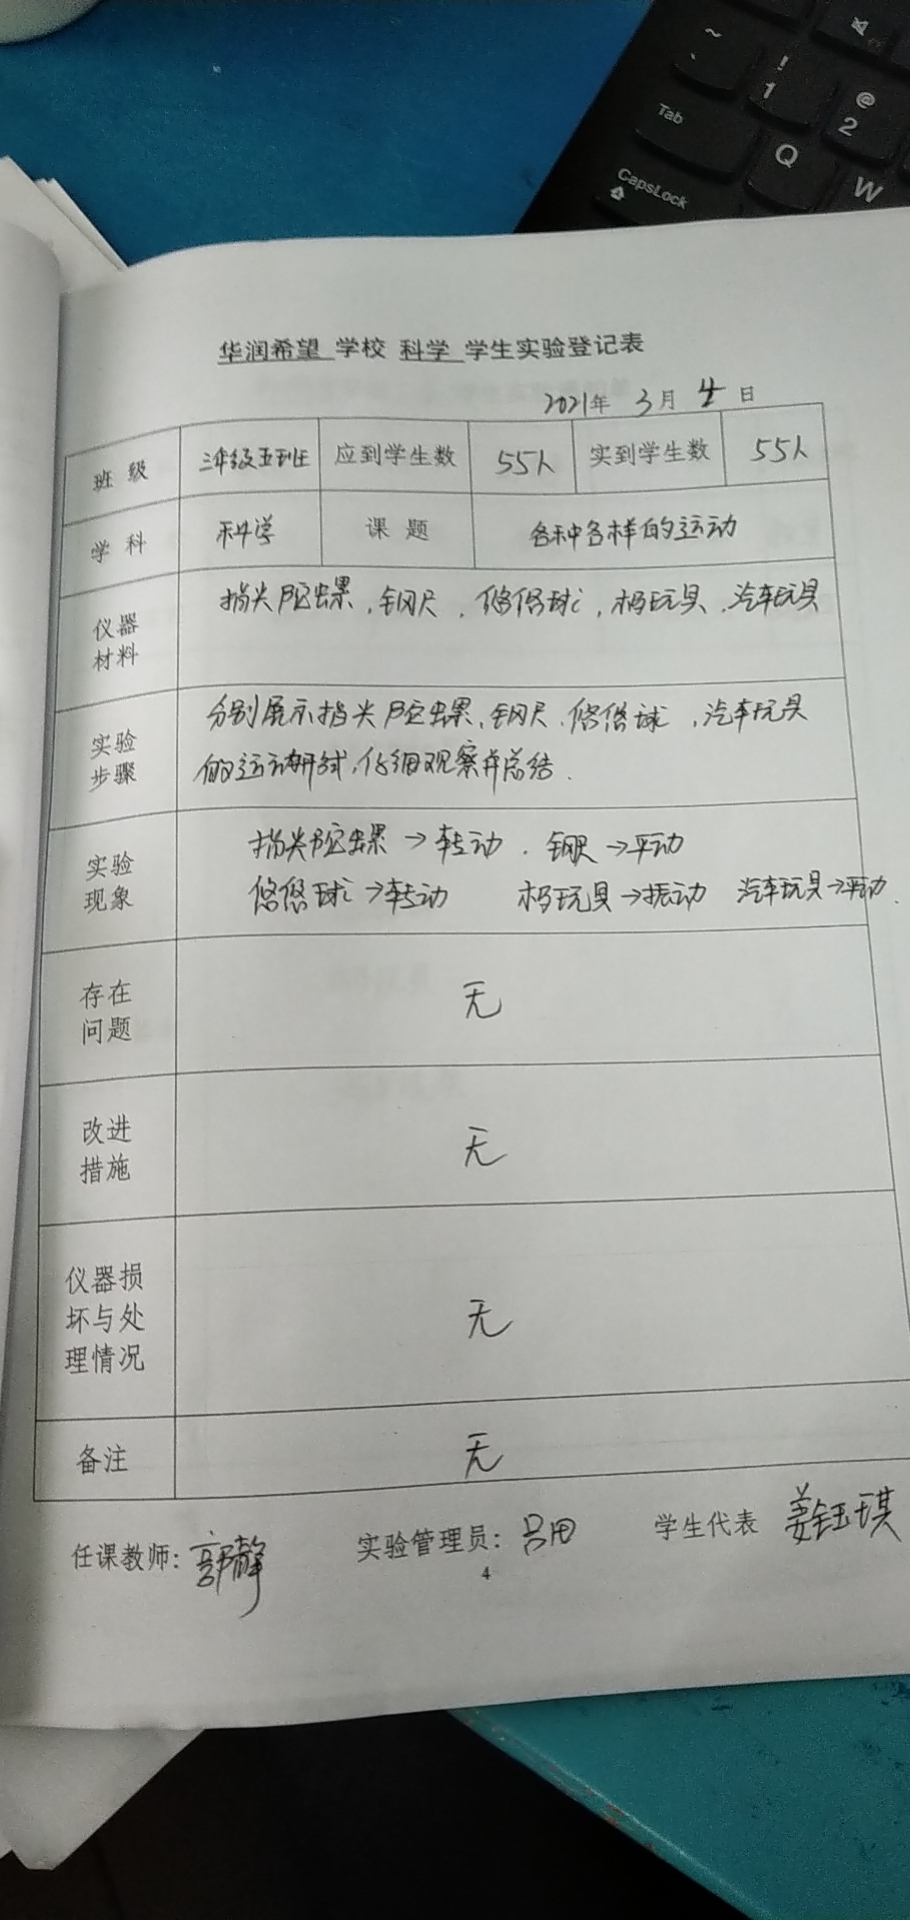 ~
`
!
1
@
2
Tab
Q
W
CapsLock
华润希望 学校 科学 学生实验登记表
2021年 3月 4日
班级 三年级五班 应到学生数 55人 实到学生数 55人
学科 科学 课题 各种各样的运动
仪器材料 指尖陀螺,钢尺,悠悠球,玩具,汽车玩具
实验步骤 分别展示指尖陀螺,钢尺,悠悠球,汽车玩具
的运动,仔细观察并总结.
实验现象 指尖陀螺→转动.钢尺→平动
悠悠球→转动 玩具→振动 汽车玩具→平动.
存在问题 无
改进措施 无
仪器损坏与处理情况 无
备注 无
任课教师:郭静 实验管理员:吕 学生代表 姜钰琪
4